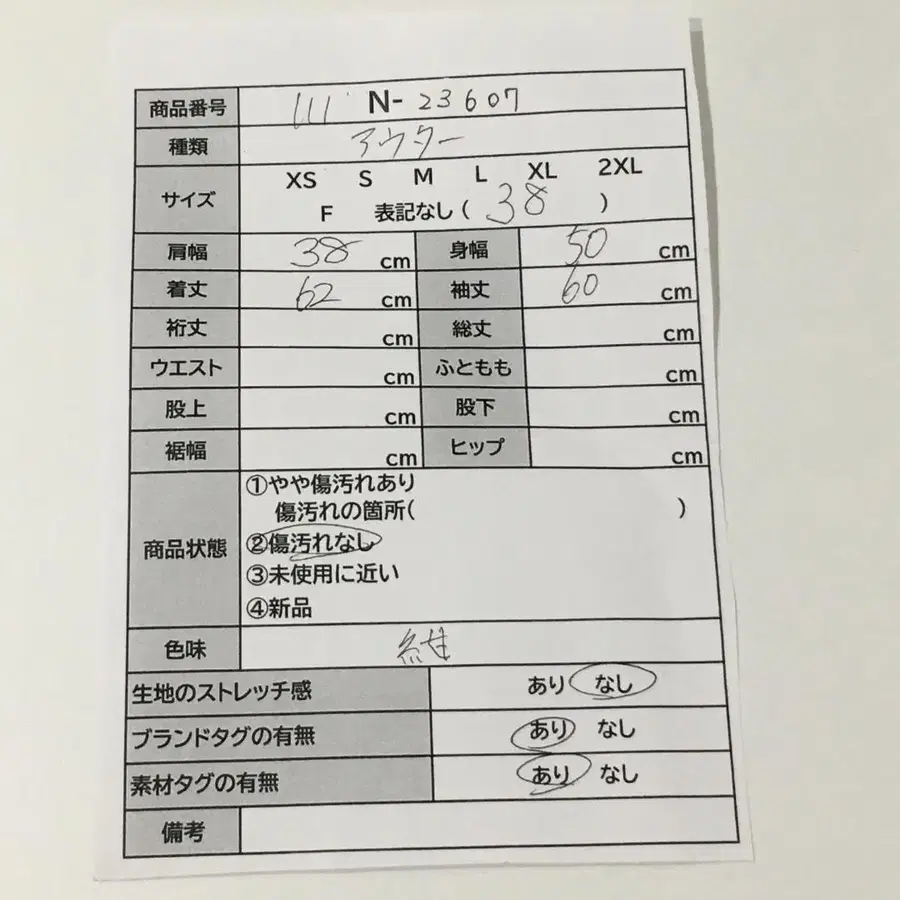 商品番号 111 N-23607
種類 アウター
サイズ XS S M L XL 2XL
F 表記なし(38)
肩幅 38 cm 身幅 50 cm
着丈 62 cm 袖丈 60 cm
裄丈 cm 総丈 cm
ウエスト cm ふともも cm
股上 cm 股下 cm
裾幅 cm ヒップ cm
商品状態 ①やや傷汚れあり
傷汚れの箇所( )
②傷汚れなし
③未使用に近い
④新品
色味 紺
生地のストレッチ感 あり なし
ブランドタグの有無 あり なし
素材タグの有無 あり なし
備考